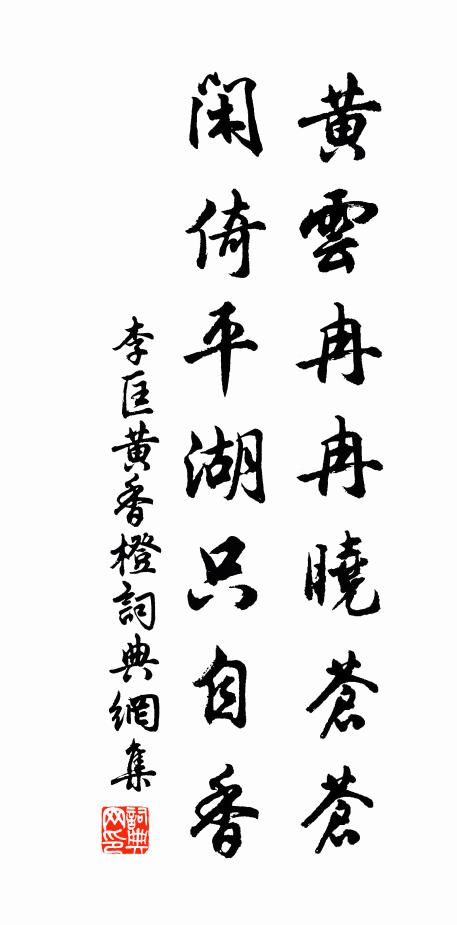 黄雲冉冉曉蒼蒼
閑倚平湖只自香
李匡黄香橙詞典網集
詞典網印